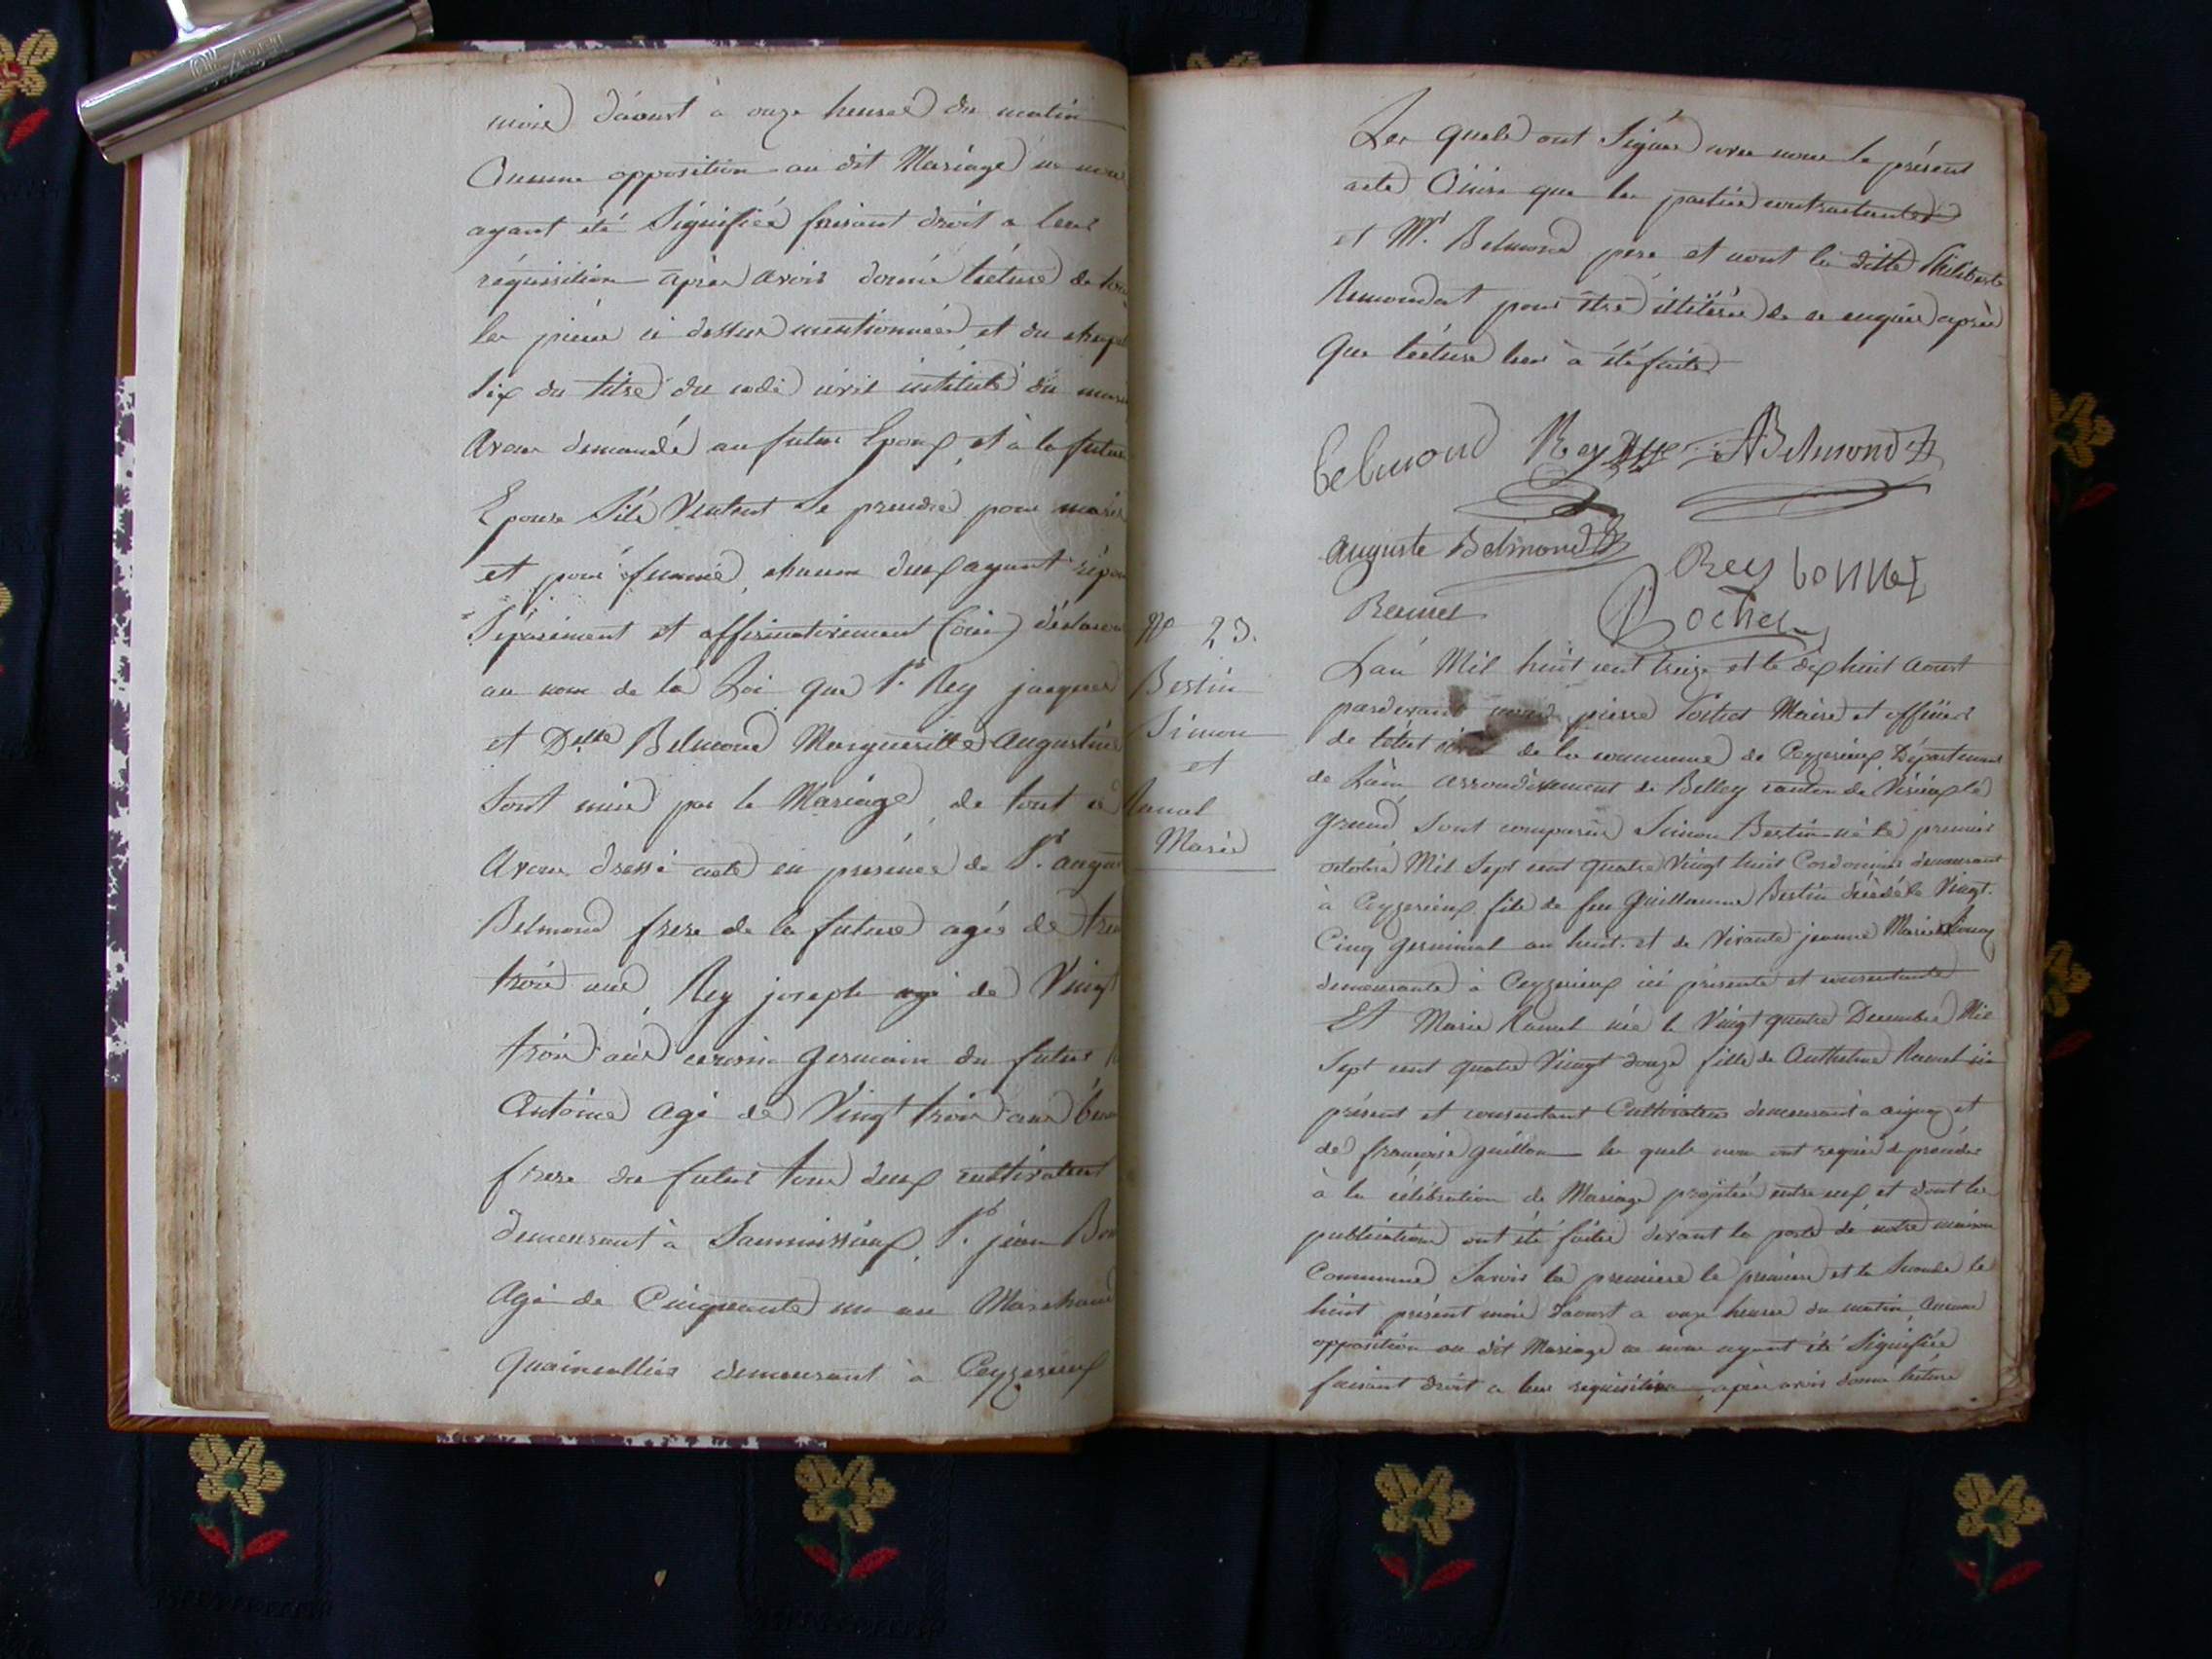 mois d'aoust à onze heures du matin
Aucune opposition au dit Mariage ne nous
ayant été Signifiée faisant droit a leur
réquisition après avoir donné lécture de
les pièces ci dessus mentionnées et du
Six du titre du code civil intitulé du
Avons demandé au futur Epoux et à la future
Epouse S'ils Veulent Se prendre pour mari
et pour femme, chacun deux ayant
Séparément et affirmativement (oui) déclarons
au nom de la Loi que Sr. Rey jacques
et Delle Belmond Margueritte Augustine
Sont unis par le Mariage, de tout ce
Avons dressé acte en présence de Sr. august
Belmond frere de la future agée de
trois ans, Rey joseph agé de Vingt
trois ans cousin Germain du futur
Antoine agé de Vingt trois ans
frere du futur tous deux cultivateurs
demeurant à Sr. jean
Agé de Cinquante un an Marchand
Quaincallier demeurant à Ceyzerieux
Les quels ont Signés avec nous le présent
acte Ainsi que les parties contractantes
et Mr. Belmond pere et nont la ditte Philiberte
pour être illitérée de ce enquise après
Que lécture leur à été faite
belmond Rey ABelmond
Auguste Belmond
Rey bonnet
Ramel Rochet
No 23.
Bertin
Simon
et
Ramel
Marie
L'an Mil huit cent treize et le dix huit Aoust
pardevant nous pierre Maire et officier
de l'état civil de la commune de Ceyzerieux Département
de L'ain Arrondissement de Belley canton de Virieux le
Grand Sont comparus Simon Bertin né le premier
octobre Mil Sept cent quatre Vingt huit Cordonnier demeurant
à Ceyzerieux fils de feu Guillaume Bertin décédé le Vingt
Cinq Germinal an huit. et de Vivante jeanne Marie
demeurante à Ceyzerieux ici présente et consentante
Et Marie Ramel née le Vingt quatre Decembre Mil
Sept cent quatre Vingt douze fille de Anthelme Ramel ici
présent et consentant Cultivateur demeurant à et
de françoise Guillon les quels nous ont requis de procéder
à la célébration de Mariage projetté entre eux et dont les
publications ont été faites devant la porte de notre maison
Commune Savoir la premiere le premier et la Seconde le
huit présent mois d'aoust a onze heures du matin Aucune
opposition au dit Mariage ne nous ayant été Signifiée
faisant droit a leur requisition, après avoir donné lécture